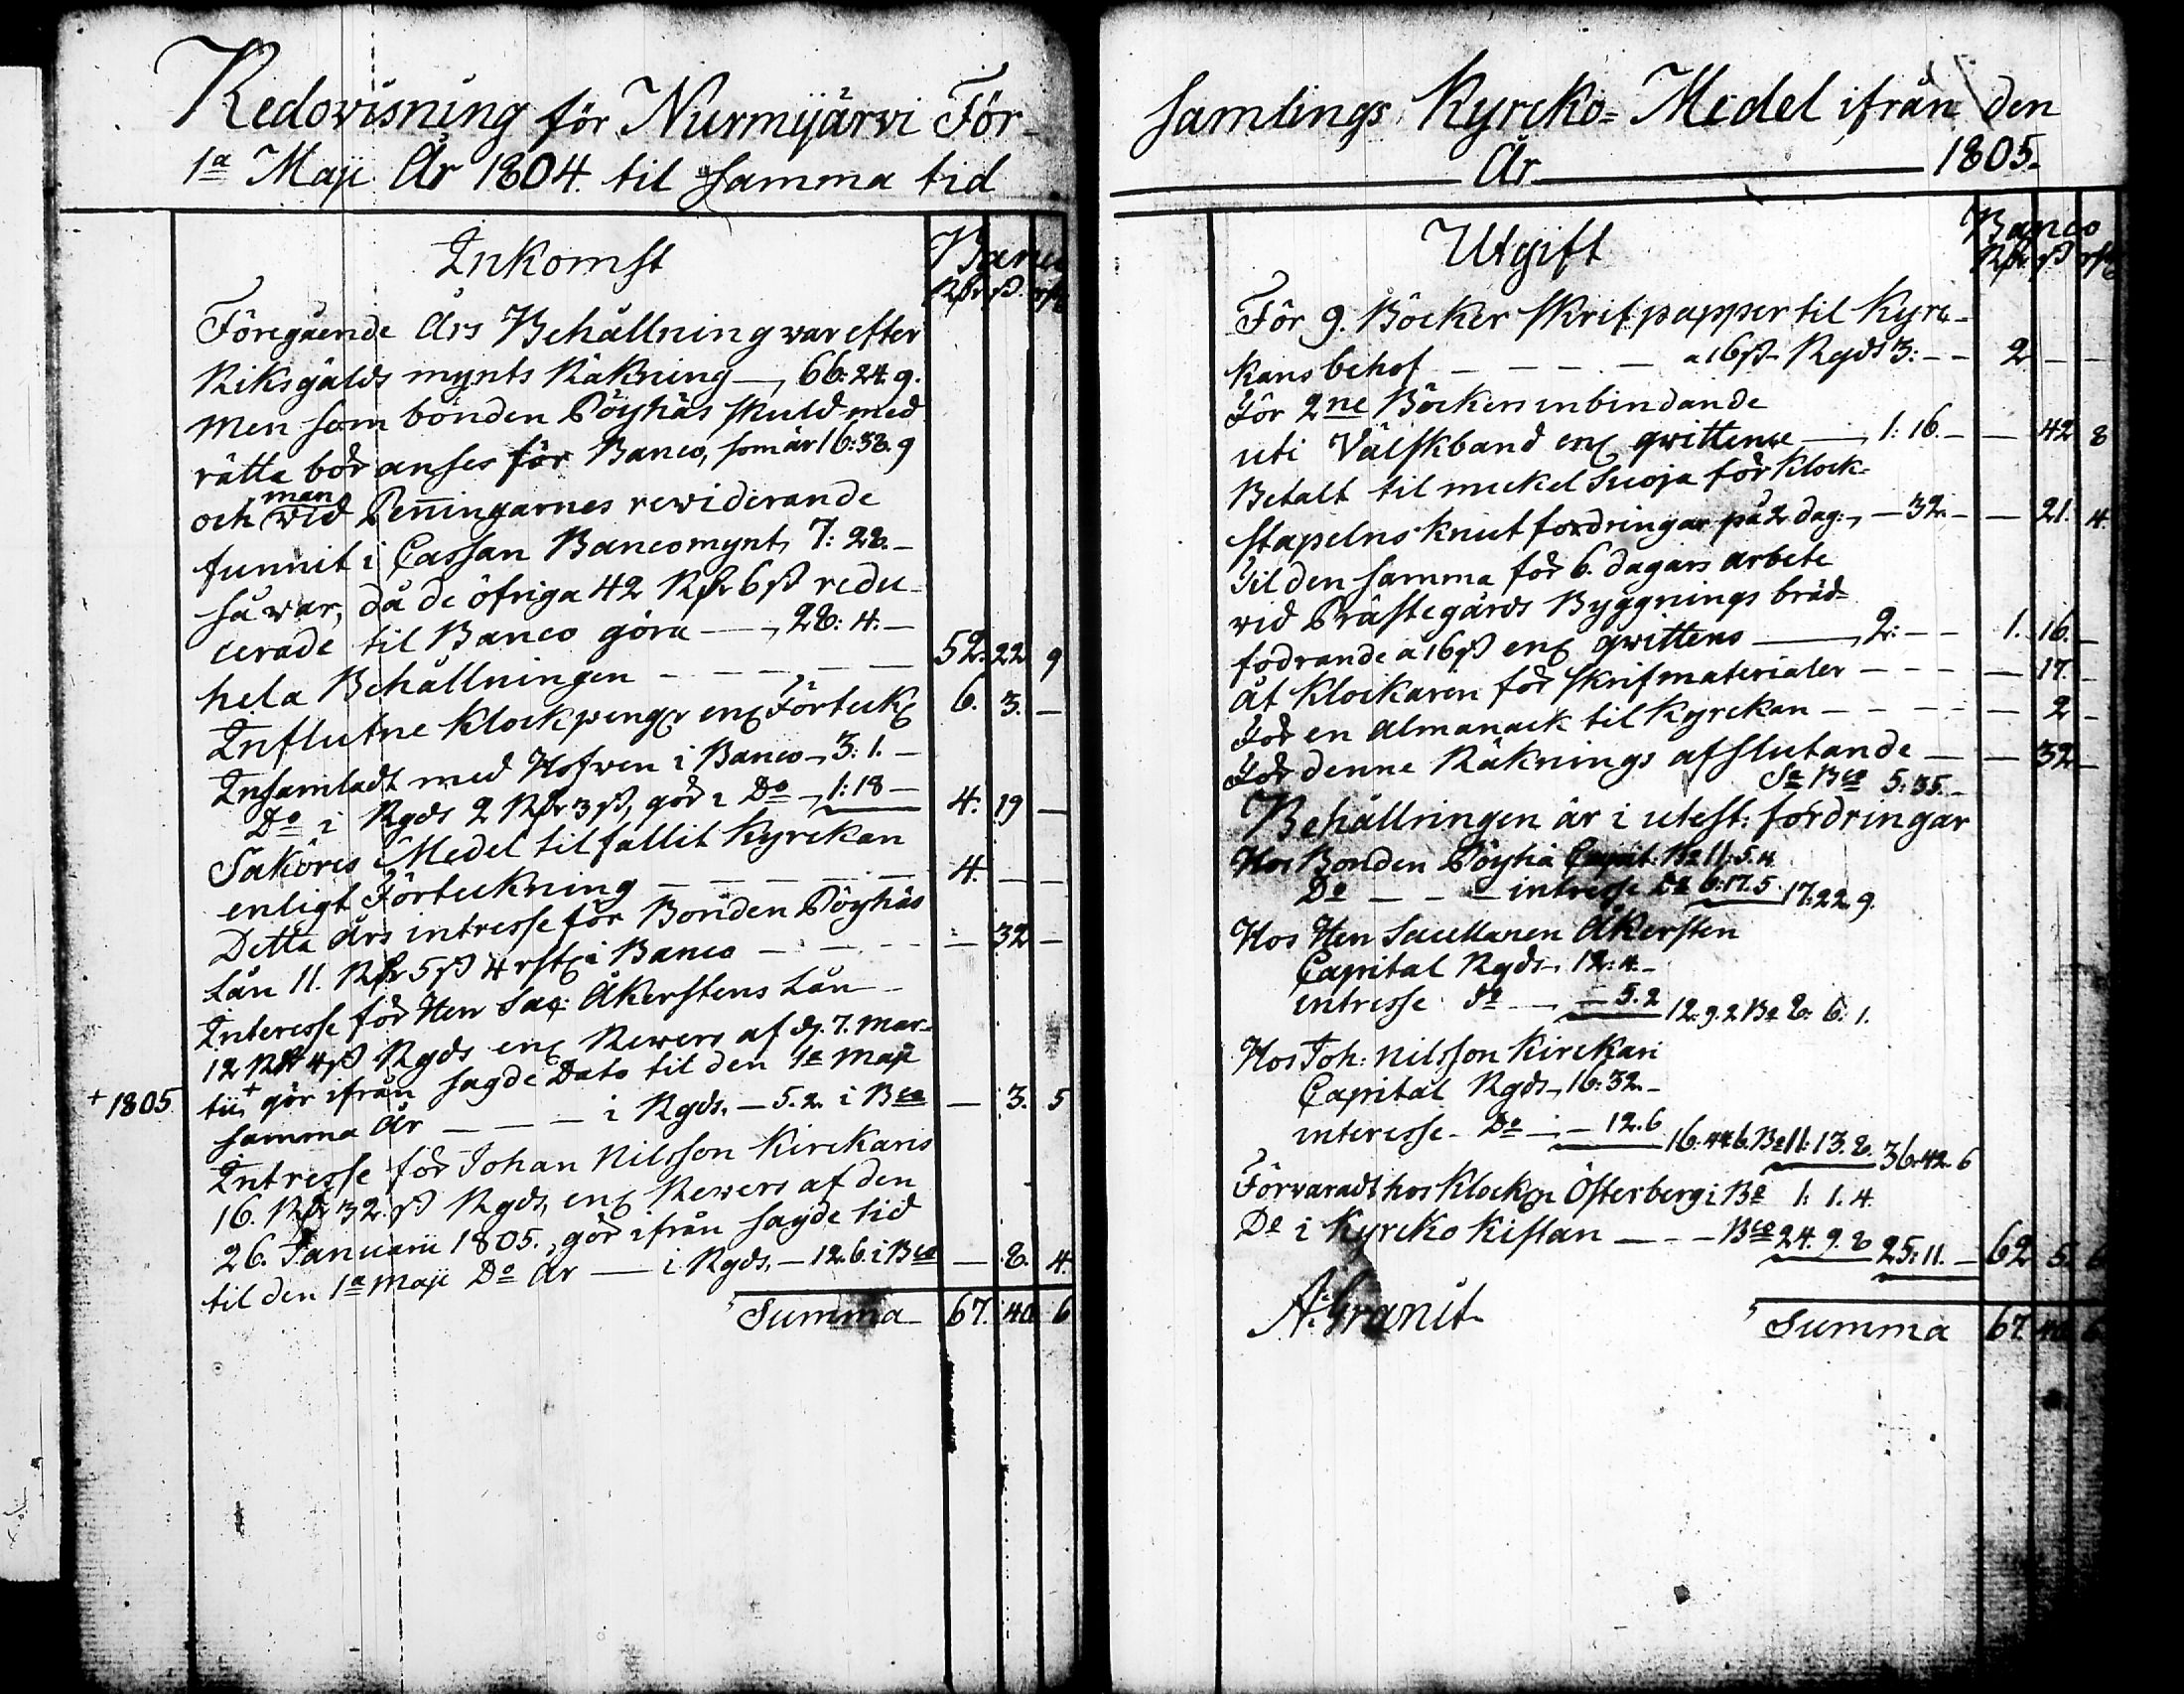 Redovisning för Nurmijärvi För-
1a Maji År 1804. til samma tid
Inkomst
Banco
Rdr ß. rst
Föregående Års Behållning war efter
Riksgälds mynts Räkning —, 66: 24. 9.
Men som bonden Pöyhäs skuld med
rätta bör anses för Banco, som är 16: 38. 9
och man wid Penningarnes rewiderande
funnit i Cassan Bancomynt, 7: 28. —
så war, då de öfriga 42 Rdr 6 ß redu-
cerade til Banco göra —, 28: 4. —
hela Behållningen — — — — 52. 22 9
Influtne Klockpengr enl Förteckn 6. 3. —
Insamladt med Hofwen i Banco —, 3: 1. —
Do i Rgds 2 Rdr 3 ß, gör i Do —, 1: 18 — 4. 19 —
Saköres Medel tilfallit Kyrckan
enligt Förteckning — — — — — 4. — —
Detta års intresse för Bonden Pöyhäs
Lån 11. Rdr 5 ß 4 rst i Banco — — — — 32 —
Interesse för Herr Sac: Åkerstens Lån —
12 Rdr 4 ß Rgds enl Rewers af d. 7. Mar-
+ 1805 tii,+ gör ifrån sagde Dato til den 1a Maji
samma År — — — i Rgds, — 5. 2. i Bco — 3. 5
Intresse för Johan Nilsson Kirckaris
16. Rdr 32. ß Rgds, enl Rewers af den
26. Januarii 1805., gör ifrån sagde tid
til den 1a Maji Do År — i Rgds, — 12. 6. i Bco — 8. 4.
Summa 67. 40 6
samlings Kyrcko= Medel ifrån den
År 1805.
Utgift
Banco
Rdr ß rst
För 9. Böcker Skrifpapper til Kyrc-
kans behof — — — — a 16 ß — Rgds 3: — — 2 — —
För 2ne Böckers inbindande
uti Välskband enl qwittence —, 1: 16. — — 42 8
Betalt til mickel Suoja för Klock=
stapelns knutfordringar på 2 dag:, — 32. — — 21. 4.
Til den samma för 6. dagars arbete
vid Prästegårds Byggnings bräd-
fodrande a 16 ß enl qwittens —, 2: — — 1. 16. —
åt Klockaren för Skrifmaterialer — — — — 17. —
För en Almanack til Kyrckan — — — — — 2 —
För denne Räknings afslutande — — 32 —
Sa Bco 5: 35. —
Behållningen är i utest: fordringar
Hos Bonden Pöyhä Capit: Bo 11. 5. 4
Do — — — intresse Do 6: 17. 5. 17: 22. 9.
Hos Herr Sacellanen Åkersten
Capital Rgds, 12: 4. —
intresse do — — 5. 2 12. 9. 2 Bo 8: 6: 1.
Hos Joh: Nilsson Kirckari
Capital Rgds, 16: 32. —
interesse Do — — 12. 6 16. 44. 6. Bo 11: 13. 8. 36. 42. 6
Förvaradt hos Klockn Österberg i Bo 1. 1. 4.
Do i Kyrcko Kistan — — — Bco 24. 9. 8 25: 11. — 62 5. 6
A: Granit
Summa 67 40 6